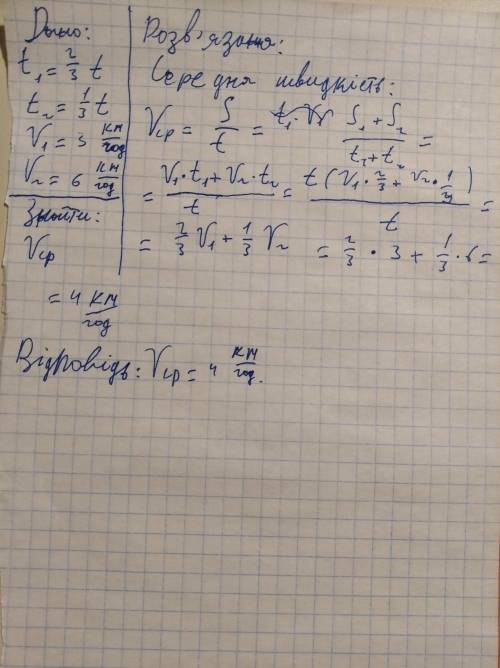 Дано:
t₁ = 2/3 t
t₂ = 1/3 t
V₁ = 3 км/год
V₂ = 6 км/год
Знайти:
Vср
Розв'язання:
Середня швидкість:
Vср = S/t = (S₁ + S₂)/(t₁ + t₂) =
= (V₁·t₁ + V₂·t₂)/t = t(V₁·2/3 + V₂·1/3)/t =
= 2/3 V₁ + 1/3 V₂ = 2/3 · 3 + 1/3 · 6 =
= 4 км/год
Відповідь: Vср = 4 км/год.